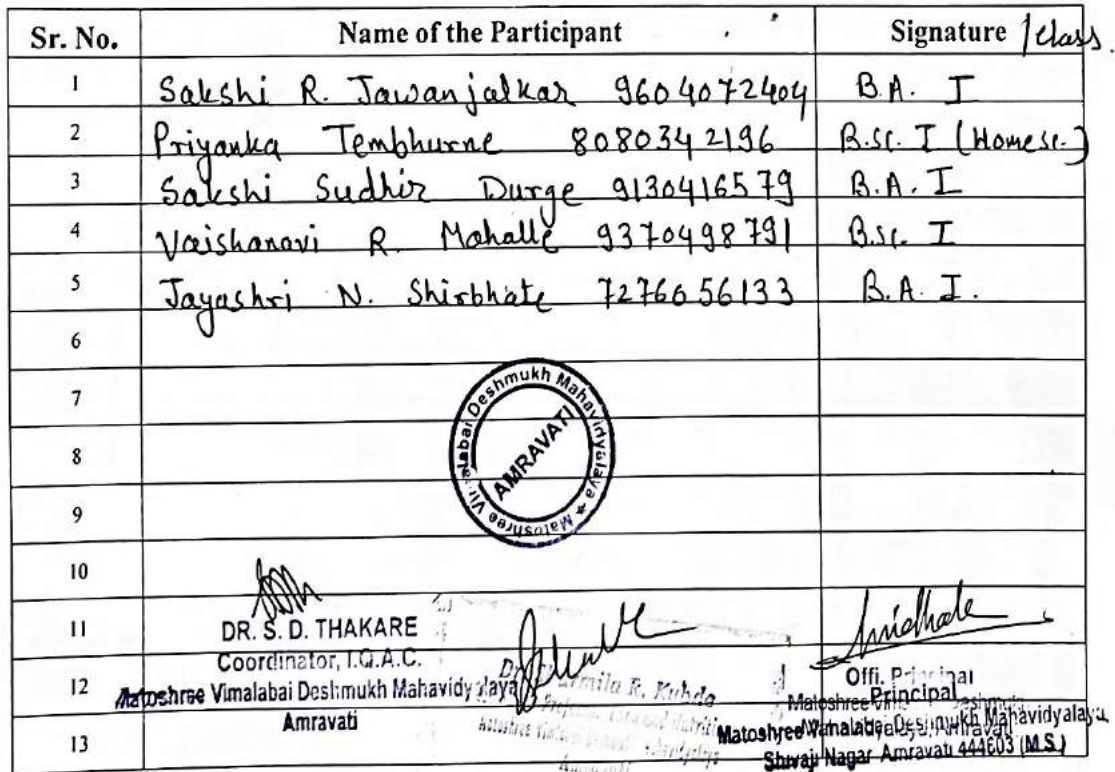 Sr. No. Name of the Participant Signature / class.
1 Sakshi R. Jawanjalkar 9604072404 B.A. I
2 Priyanka Tembhurne 8080342196 B.sc. I (Homesc.)
3 Sakshi Sudhir Durge 9130416579 B.A. I
4 Vaishanavi R. Mahalle 9370498791 B.sc. I
5 Jayashri N. Shirbhate 7276656133 B.A. I.
6
7
8
9
Matoshree Vimalabai Deshmukh Mahavidyalaya ★
AMRAVATI
10
11
DR. S. D. THAKARE
Coordinator, I.Q.A.C.
Matoshree Vimalabai Deshmukh Mahavidyalaya
Amravati
R. Kuhda
12
13
Offi. Principal
Principal
Matoshree Vimalabai Deshmukh Mahavidyalaya,
Shivaji Nagar Amravati 444603 (M.S.)